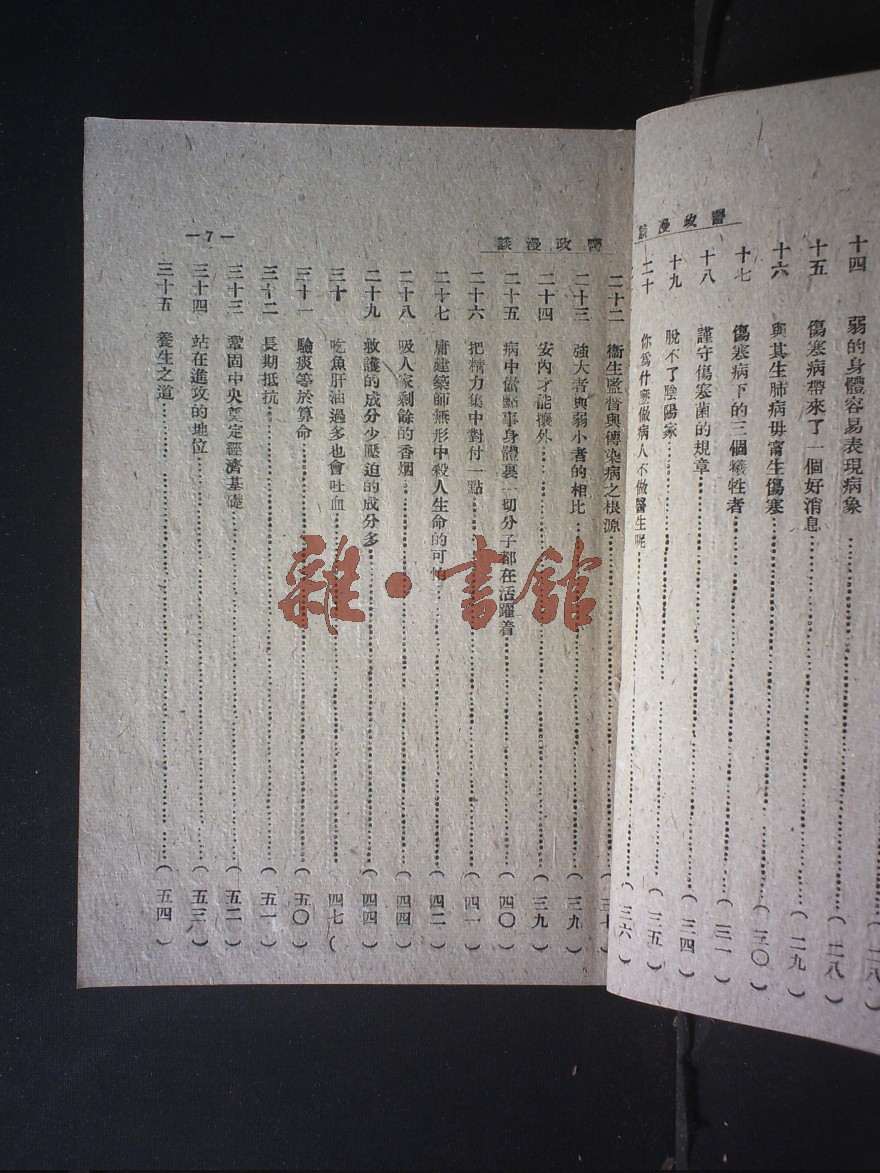 醫政漫談
十四 弱的身體容易表現病象……(二八)
十五 傷寒病帶來了一個好消息……(二八)
十六 與其生肺病毋甯生傷寒……(二九)
十七 傷寒病下的三個犧牲者……(三〇)
十八 謹守傷寒菌的規章……(三一)
十九 脫不了陰陽家……(三四)
二十 你爲什麼做病人不做醫生呢……(三五)
(三六)
醫政漫談
二十二 衞生監督與傳染病之根源……
二十三 強大者與弱小者的相比……(三九)
二十四 安內才能攘外……(三九)
二十五 病中儘點事身體裏一切分子都在活躍着……(四〇)
二十六 把精力集中對付一點……(四一)
二十七 庸建築師無形中殺人生命的可怕……(四二)
二十八 吸人家剩餘的香烟……(四四)
二十九 救護的成分少壓迫的成分多……(四四)
三十 吃魚肝油過多也會吐血……(四七)
三十一 驗痰等於算命……(五〇)
三十二 長期抵抗……(五一)
三十三 鞏固中央奠定經濟基礎……(五二)
三十四 站在進攻的地位……(五三)
三十五 養生之道……(五四)
—7—
雜·書館